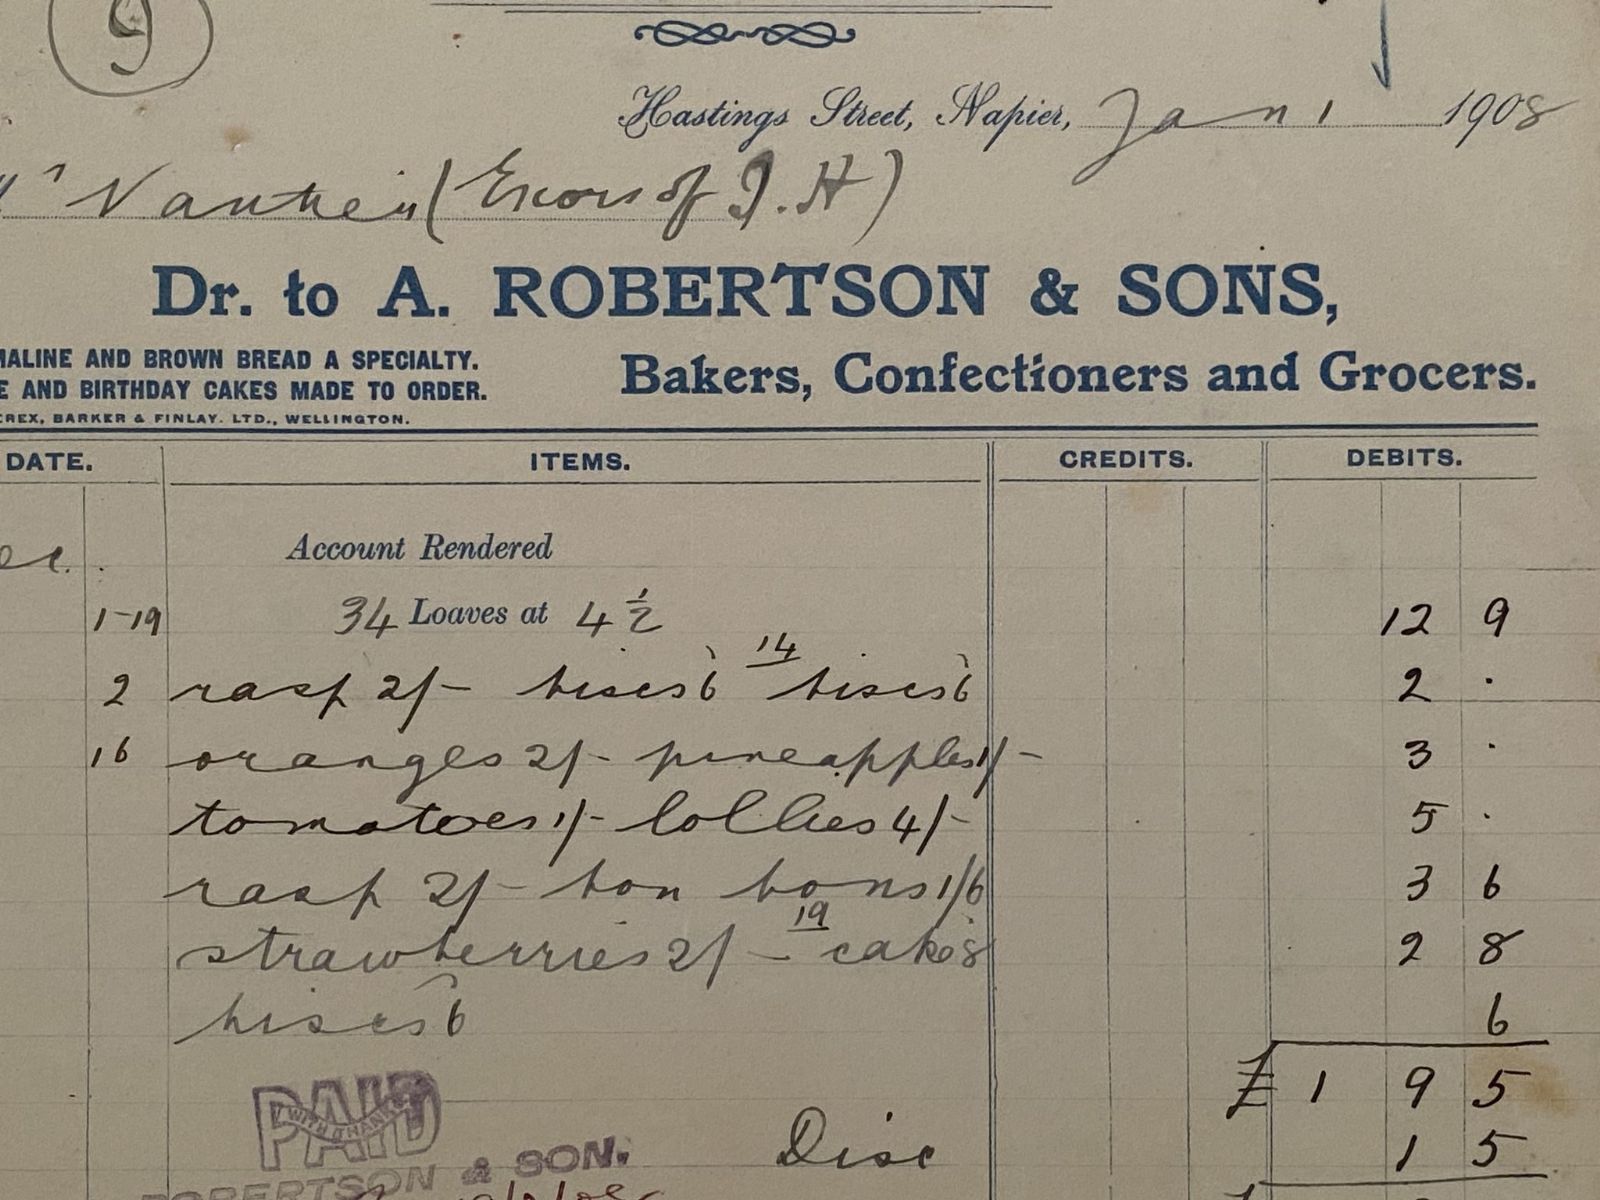 9
Hastings Street, Napier, Jan 1 1908
(Excors of J.H)
Dr. to A. ROBERTSON & SONS,
MALINE AND BROWN BREAD A SPECIALTY.
E AND BIRTHDAY CAKES MADE TO ORDER.
Bakers, Confectioners and Grocers.
REX, BARKER & FINLAY. LTD., WELLINGTON.
DATE. ITEMS. CREDITS. DEBITS.
ec. Account Rendered
1-19 34 Loaves at 4 1/2 12 9
2 rasp 2/- biscs 6 14 biscs 6 2 .
16 oranges 2/- pineapples 1/- 3 .
tomatoes 1/- lollies 4/- 5 .
rasp 2/- bon bons 1/6 3 6
strawberries 2/- 19 cake 8 2 8
biscs 6 6
£ 1 9 5
Disc 1 5
PAID
WITH THANKS
ROBERTSON & SON.